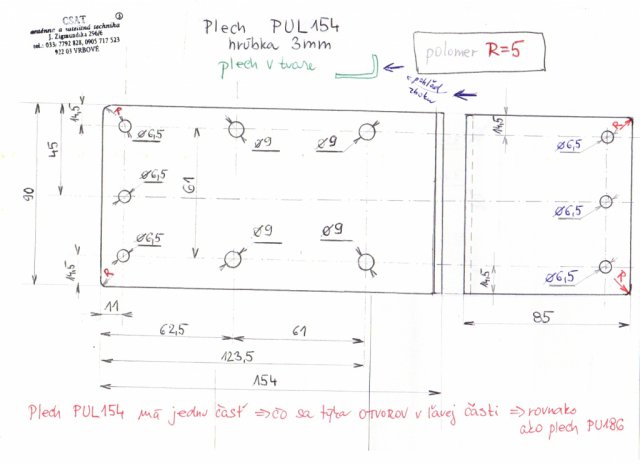 CSAT
anténna a satelitná technika
J. Zigmundíka 296/6
tel.: 033/ 7792 828, 0905 717 523
922 03 VRBOVÉ
Plech PUL154
hrúbka 3mm
plech v tvare
polomer R=5
pohľad
zboku
R
R
R
R
14,5
45
90
14,5
Ø6,5
Ø6,5
Ø6,5
61
Ø9
Ø9
Ø9
Ø9
11
62,5
61
123,5
154
14,5
14,5
Ø6,5
Ø6,5
Ø6,5
85
Plech PUL154 má jednu časť => čo sa týka OTVOROV v ľavej časti => rovnako
ako plech PU186